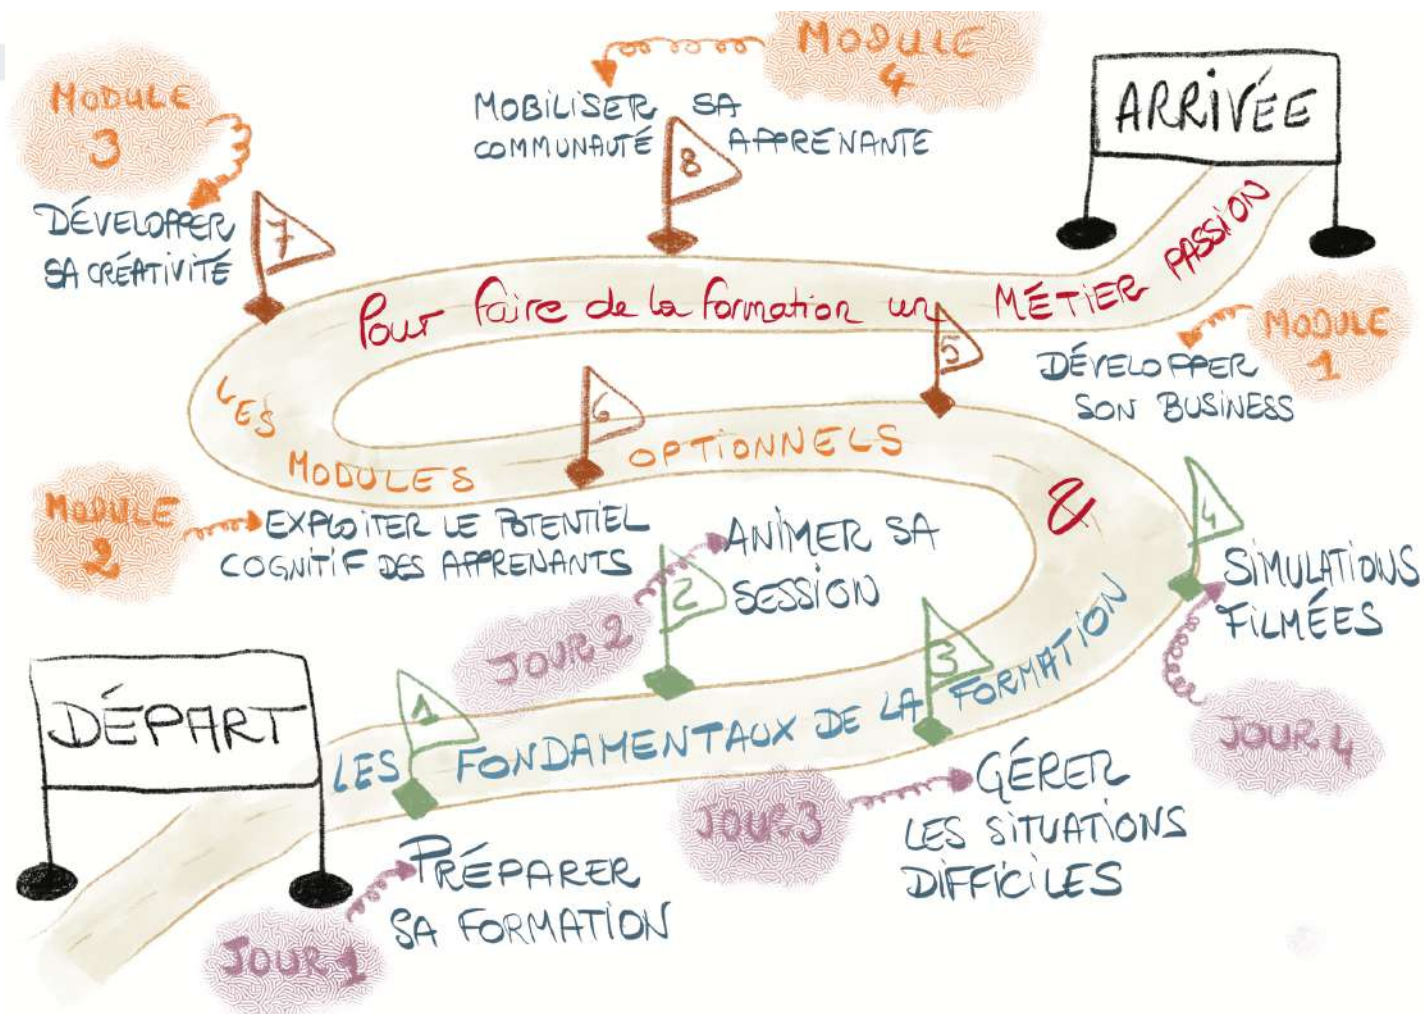 MODULE
3
DÉVELOPPER
SA CRÉATIVITÉ
7
MODULE
4
MOBILISER SA
COMMUNAUTÉ APPRENANTE
8
ARRIVÉE
Pour faire de la formation un MÉTIER PASSION
MODULE
1
DÉVELOPPER
SON BUSINESS
5
6
LES MODULES OPTIONNELS
&
MODULE
2
EXPLOITER LE POTENTIEL
COGNITIF DES APPRENANTS
4
SIMULATIONS
FILMÉES
JOUR 4
ANIMER SA
SESSION
2
JOUR 2
3
DÉPART
1
LES FONDAMENTAUX DE LA FORMATION
JOUR 3
GÉRER
LES SITUATIONS
DIFFICILES
PRÉPARER
SA FORMATION
JOUR 1